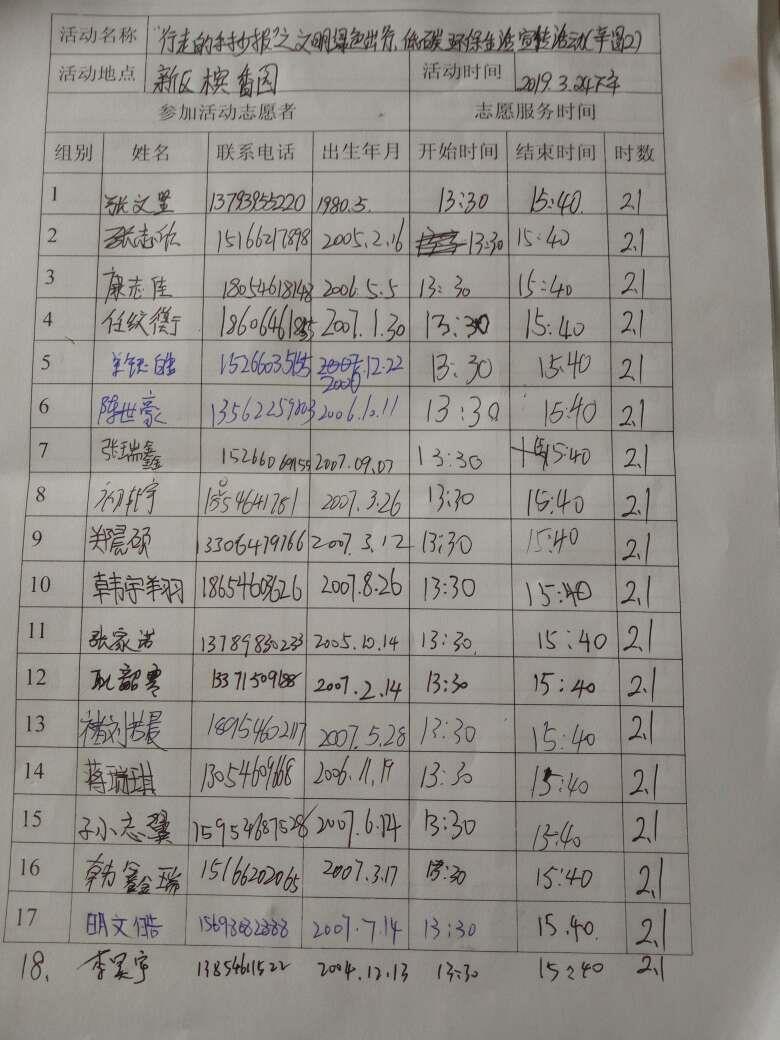 活动名称 "行走的手抄报"之文明绿色出行、低碳环保生活宣传活动(年图2)
活动地点 新区槟香园 活动时间 2019.3.24下午
参加活动志愿者 志愿服务时间
组别 姓名 联系电话 出生年月 开始时间 结束时间 时数
1 张文 13793955220 1980.5. 13:30 15:40. 2.1
2 张志欣 15166217898 2005.2.16 13:30 15:40 2.1
3 康志佳 18054618148 2006.5.5 13:30 15:40 2.1
4 任纹衡 2007.1.30 13:30 15:40 2.1
5 2006.12.22 13:30 15:40 2.1
6 陈世豪 13562259803 2006.10.11 13:30 15:40 2.1
7 张瑞鑫 2007.09.07 13:30 15:40 2.1
8 宇 2007.3.26 13:30 15:40 2.1
9 郑晨硕 13306479766 2007.3.12 13:30 15:40 2.1
10 韩宇羊羽 18654603626 2007.8.26 13:30 15:40 2.1
11 张家诺 13789830233 2005.10.14 13:30. 15:40 2.1
12 耿韶骞 13371509188 2007.2.14 13:30 15:40 2.1
13 刘若晨 18915460217 2007.5.28 13:30 15:40 2.1
14 蒋瑞琪 13054609668 2006.11.19 13:30 15:40 2.1
15 孙志翼 159534687528 2007.6.14 13:30 15:40 2.1
16 韩鑫瑞 15166202065 2007.3.17 13:30 15:40 2.1
17 明文皓 2007.7.14 13:30 15.40. 2.1
18. 李昊宇 13854611522 2004.12.13 13:30 15:40 2.1